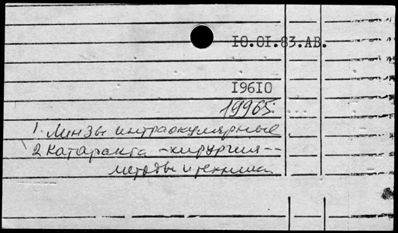 10.01.83.АВ.
19610
19965.
1. Линзы интраокулярные
2 Катаракта - хирургия --
методы и техника